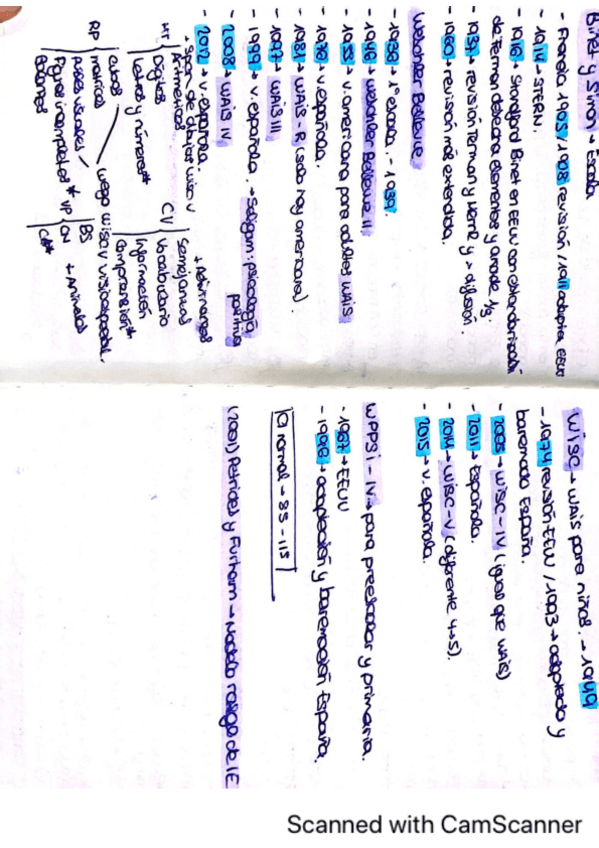 Binet y Simon → Escala
- Francia 1905 / 1908 revisión / 1911 adapta EEUU
- 1914 → STERN.
- 1916 → Standford Binet en EEUU con estandarización
de Terman descarta elementos y añade
- 1937 → revisión Terman y Merril y + difusión.
- 1960 → revisión más extendida.
Weschler Bellevue
- 1938 → 1ª escala. - 1939.
- 1946 → Weschler Bellevue II
- 1955 → v. americana para adultos WAIS
- 1970 → v. española.
- 1981 → WAIS-R (solo hay americana).
- 1997 → WAIS III
- 1999 → v. española. → Seligman: psicología positiva
- 2008 → WAIS IV
- 2012 → v. española.
+ span de dibujos WISC V
MT | Aritmética
Dígitos
Letras y números*
RP | Cubos
matrices
puzles visuales
figuras incompletas*
Balanzas
luego WISC V visioespacial.
CV | Semejanzas
Vocabulario
Información
Comprensión*
VP | BS
CN
CA*
+ Animales
WISC → WAIS para niños. → 1949
- 1974 revisión EEUU / 1993 → adaptada y
baremada España.
- 2005 → WISC-IV (igual que WAIS)
- 2011 → Española.
- 2014 → WISC-V (diferente 4→5).
- 2015 → v. española.
WPPSI-IV → para preescolar y primaria.
- 1967 → EEUU
- 1996 → adaptación y baremación España.
CI normal → 85-115
(2001) Petrides y Furham → Modelo rasgo de IE
Scanned with CamScanner